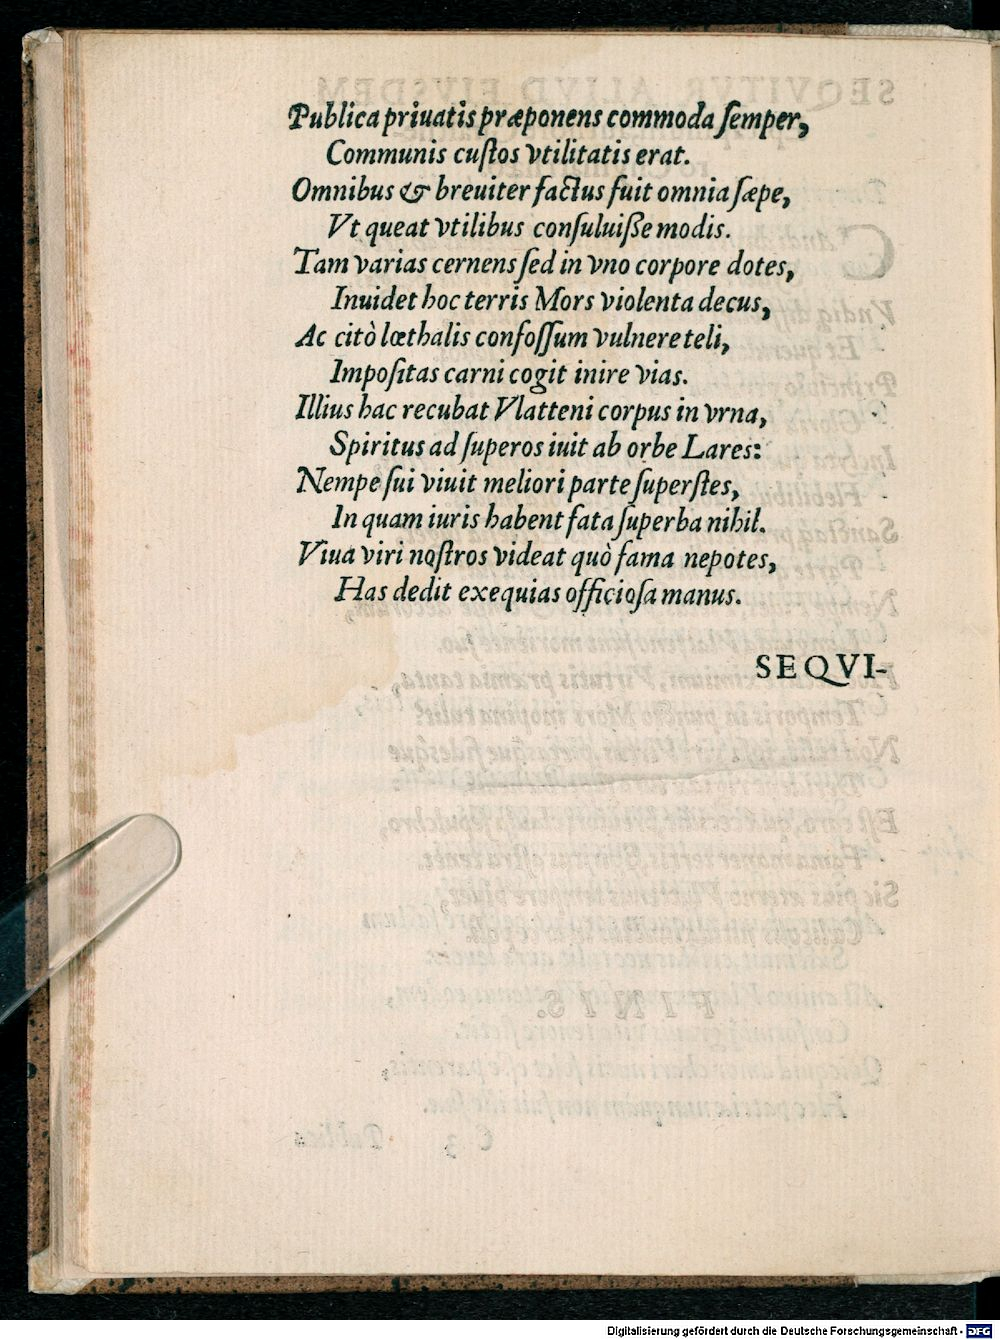 Publica priuatis præponens commoda ſemper,
Communis cuſtos vtilitatis erat.
Omnibus & breuiter factus fuit omnia ſæpe,
Vt queat vtilibus conſuluiſſe modis.
Tam varias cernens ſed in vno corpore dotes,
Inuidet hoc terris Mors violenta decus,
Ac citò lœthalis confoſſum vulnere teli,
Impoſitas carni cogit inire vias.
Illius hac recubat Vlatteni corpus in vrna,
Spiritus ad ſuperos iuit ab orbe Lares:
Nempe ſui viuit meliori parte ſuperſtes,
In quam iuris habent fata ſuperba nihil.
Viua viri noſtros videat quò fama nepotes,
Has dedit exequias officioſa manus.
SEQVI-
Digitalisierung gefördert durch die Deutsche Forschungsgemeinschaft - DFG